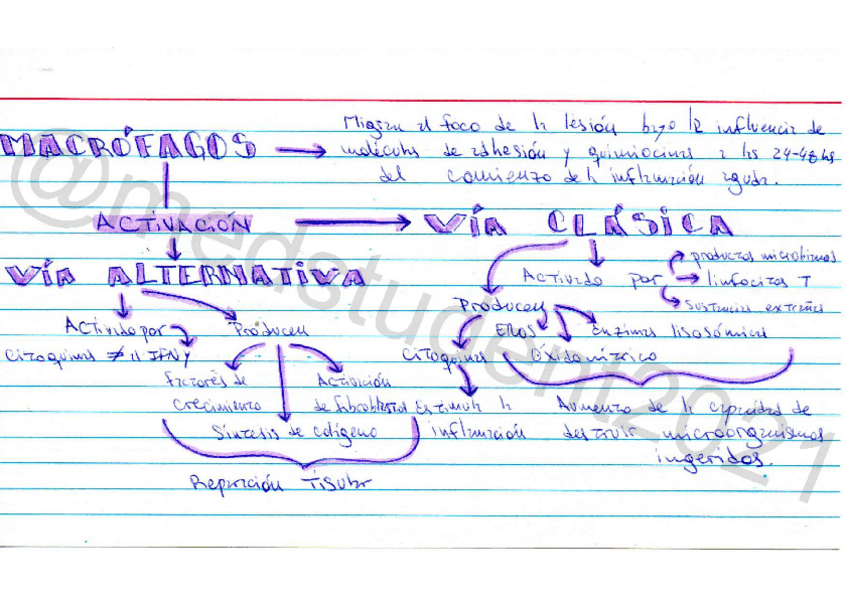 Migran al foco de la lesión bajo la influencia de
MACRÓFAGOS → moléculas de adhesión y quimiocinas a las 24-48hs
del comienzo de la inflamación aguda.
ACTIVACIÓN → VÍA CLÁSICA
productos microbianos
VÍA ALTERNATIVA
Activado por linfocitos T
sustancias extrañas
Producen
Activado por Producen
EROs Enzimas lisosómicas
Citoquinas ≠ al IFNγ
Citoquinas Óxido nítrico
Factores de crecimiento
Activación de fibroblastos
Síntesis de colágeno
Estimula la inflamación
Aumento de la capacidad de
destruir microorganismos
ingeridos.
Reparación Tisular
@medstudent2021